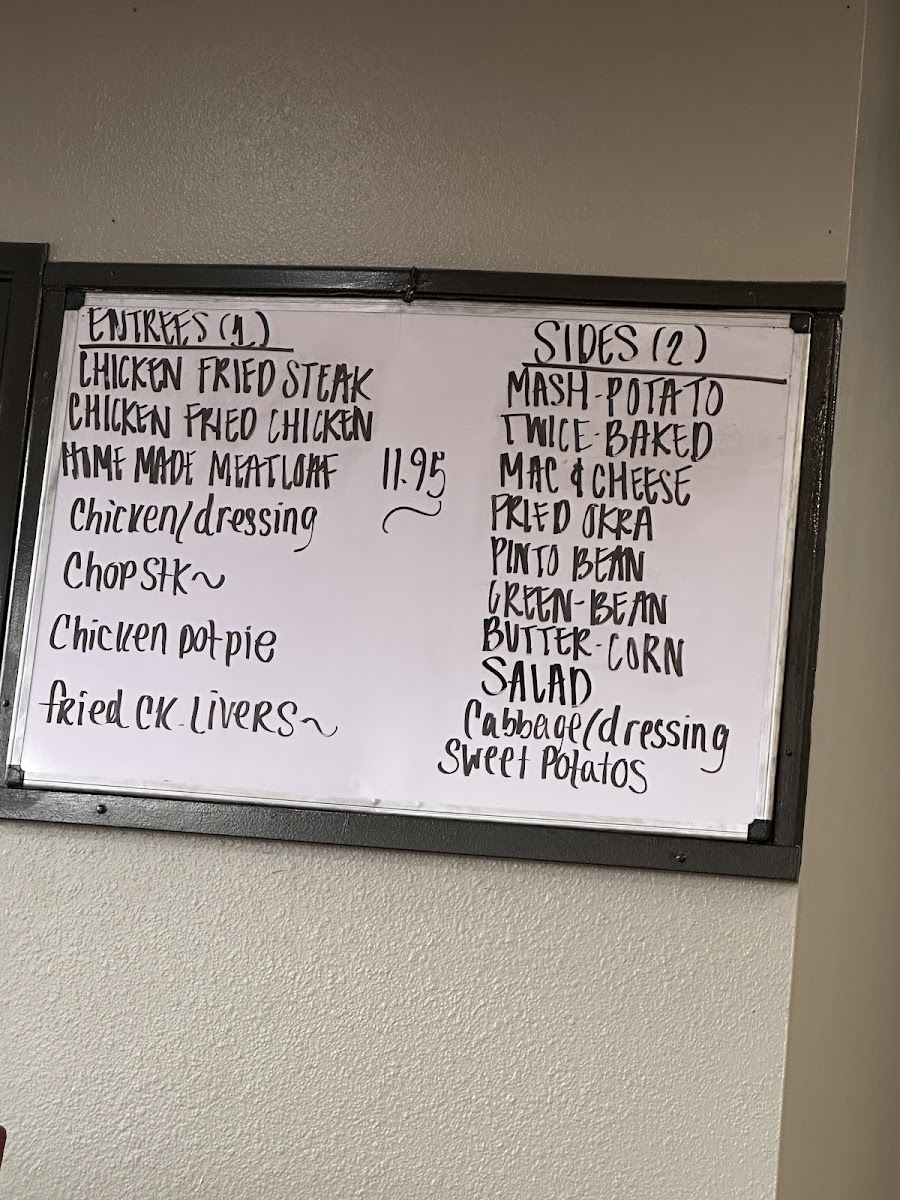 ENTREES (1)
CHICKEN FRIED STEAK
CHICKEN FRIED CHICKEN
HOME MADE MEATLOAF 11.95
Chicken/dressing
Chop Stk~
Chicken pot pie
fried CK-LIVERS~
SIDES (2)
MASH-POTATO
TWICE-BAKED
MAC & CHEESE
FRIED OKRA
PINTO BEAN
GREEN-BEAN
BUTTER-CORN
SALAD
Cabbage/dressing
Sweet Potatos